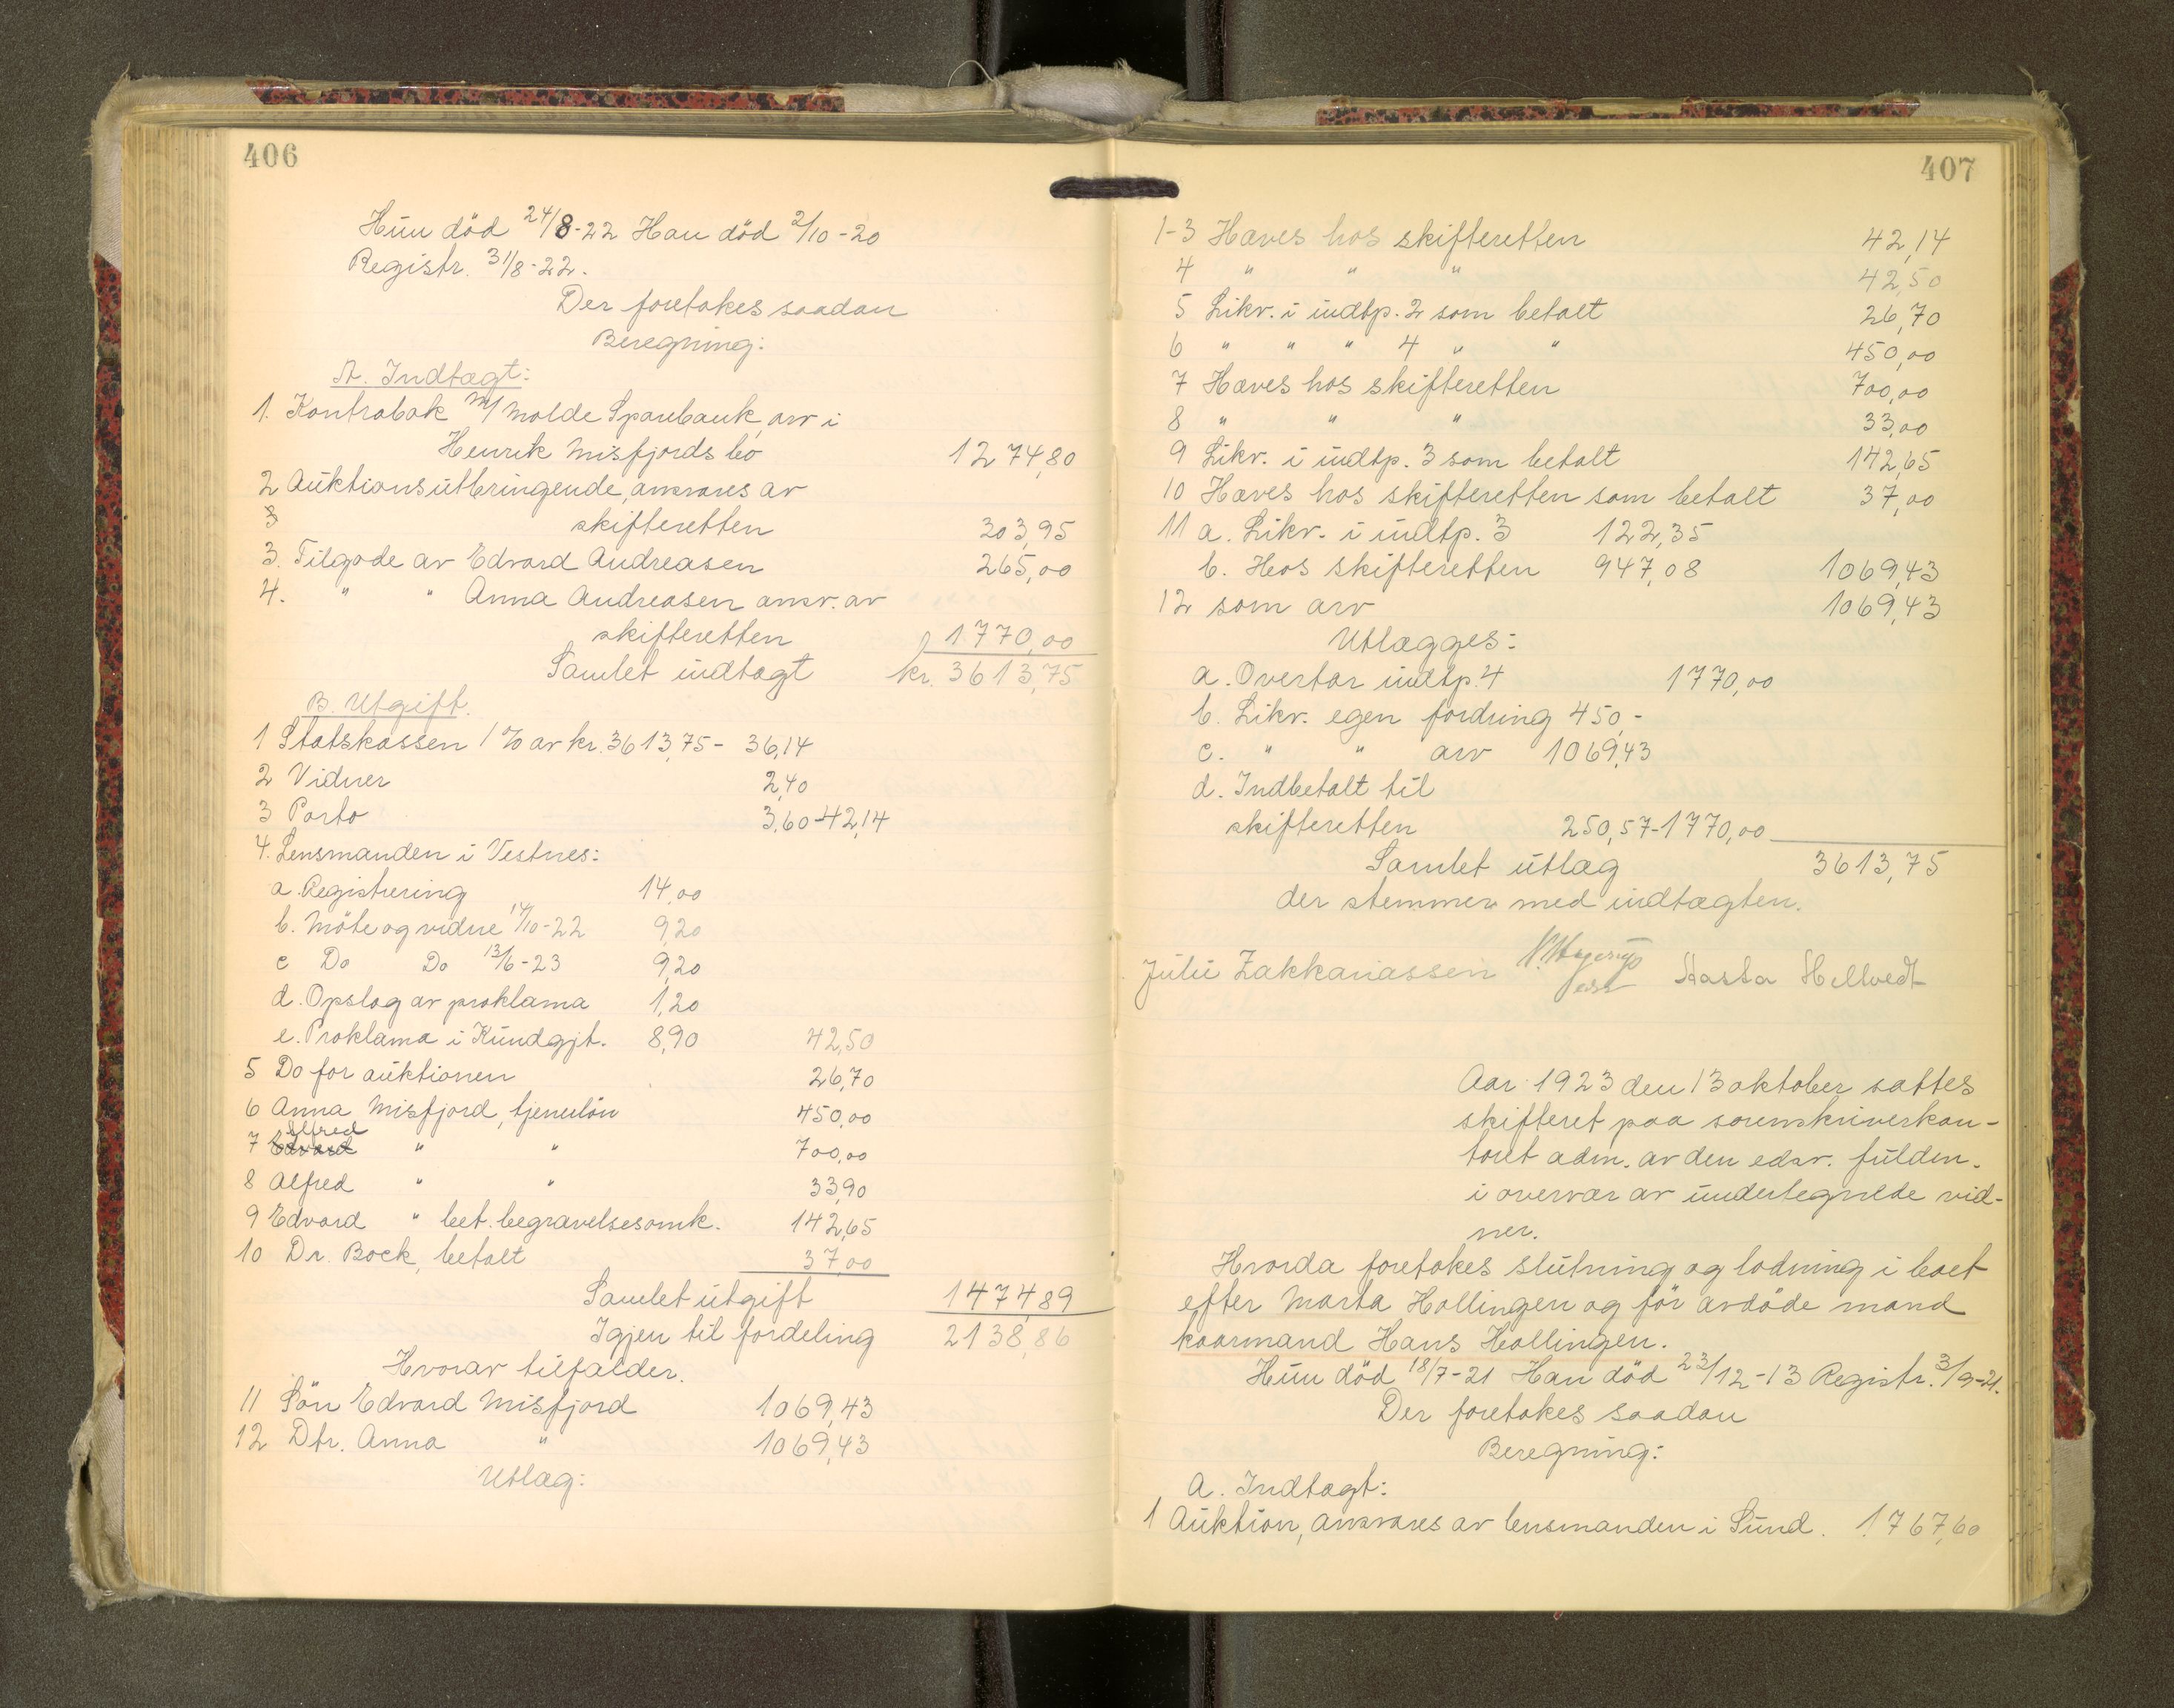 406
Hun död 24/8-22 Han död 2/10-20
Registr. 31/8-22.
Der foretakes saadan
Beregning:
A. Indtægt:
1. Kontrabok m/ Molde Sparebank, arv i
Henrik Misfjords bo 1274,80
2 Auktionsutbringende, ansvares av
3 skifteretten 303,95
3. Tilgode av Edvard Andreasen 265,00
4. " " Anna Andreasen ansv. av
skifteretten 1770,00
Samlet indtægt kr. 3613,75
B. Utgift.
1 Statskassen 1 % av kr. 3613,75 - 36,14
2 Vidner 2,40
3 Porto 3,60 - 42,14
4. Lensmanden i Vestnes:
a. Registrering 14,00
b. Möte og vidne 14/10-22 9,20
c Do Do 13/6-23 9,20
d. Opslag av proklama 1,20
e. Proklama i Kundgjt. 8,90 42,50
5 Do for auktionen 26,70
6 Anna Misfjord, tjenerlön 450,00
Alfred
7 Edvard " " 700,00
8 Alfred " " 33,90
9 Edvard " bet. begravelsesomk. 142,65
10 Dr. Bock, betalt 37,00
Samlet utgift 1474,89
Igjen til fordeling 2138,86
Hvorav tilfalder.
11 Sön Edvard Misfjord 1069,43
12 Dtr. Anna " 1069,43
Utlæg:
407
1-3 Haves hos skifteretten 42,14
4 " " " 42,50
5 Likv. i indtp. 2 som betalt 26,70
6 " " " 4 " " 450,00
7 Haves hos skifteretten 700,00
8 " " " 33,00
9 Likv. i indtp. 3 som betalt 142,65
10 Haves hos skifteretten som betalt 37,00
11 a. Likv. i indtp. 3 122,35
b. Hos skifteretten 947,08 1069,43
12 som arv 1069,43
Utlægges:
a. Overtar indtp. 4 1770,00
b. Likv. egen fordring 450 -
c. " " arv 1069,43
d. Indbetalt til
skifteretten 250,57 - 1770,00
Samlet utlæg 3613,75
der stemmer med indtægten.
Juli Zakkariassen Hasta Hellvedt
Aar 1923 den 13 oktober sattes
skifteret paa sorenskriverkon-
toret adm. av den edsv. fuldm.
i overvær av undertegnede vid-
ner.
Hvorda foretokes slutning og lodning i boet
efter Marta Hollingen og för avdöde mand
kaarmand Hans Hollingen.
Hun död 18/7-21 Han död 23/12-13 Registr. 3/9-21.
Der foretokes saadan
Beregning:
A. Indtægt:
1 Auktion, ansvares av lensmanden i Sund. 1767,60